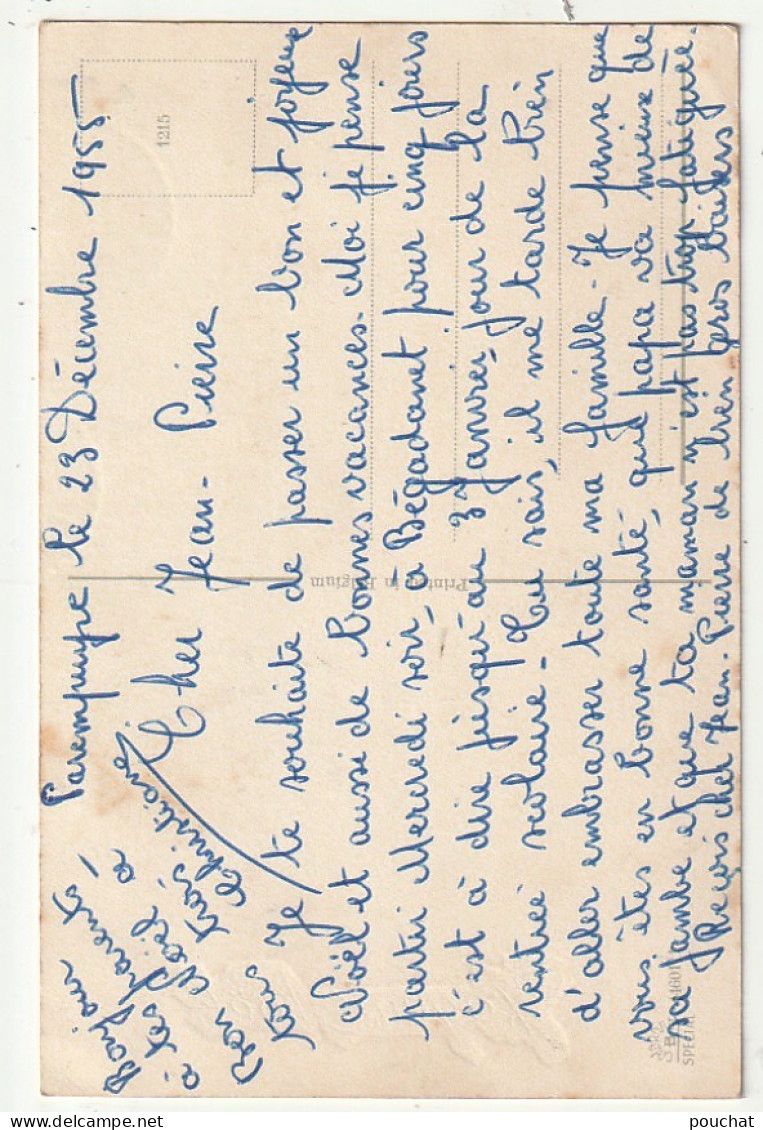 Parempuyre le 23 Décembre 1955
Cher Jean-Pierre
Je te souhaite de passer un bon et joyeux
Noël et aussi de bonnes vacances. Moi je pense
partir Mercredi soir, à Bégadanet pour cinq jours
c'est à dire jusqu'au 3 Janvier, jour de la
rentrée scolaire - Tu sais, il me tarde bien
d'aller embrasser toute ma famille - Je pense que
vous êtes en bonne santé, que papa va mieux de
sa jambe et que ta maman n'est pas trop fatiguée.
Reçois cher Jean-Pierre de bien gros baisers
Bonjour
à tes parents -
Bon Noël à
tous trois
Christiane
1215
Printed in Belgium
SPECIAL
pouchat